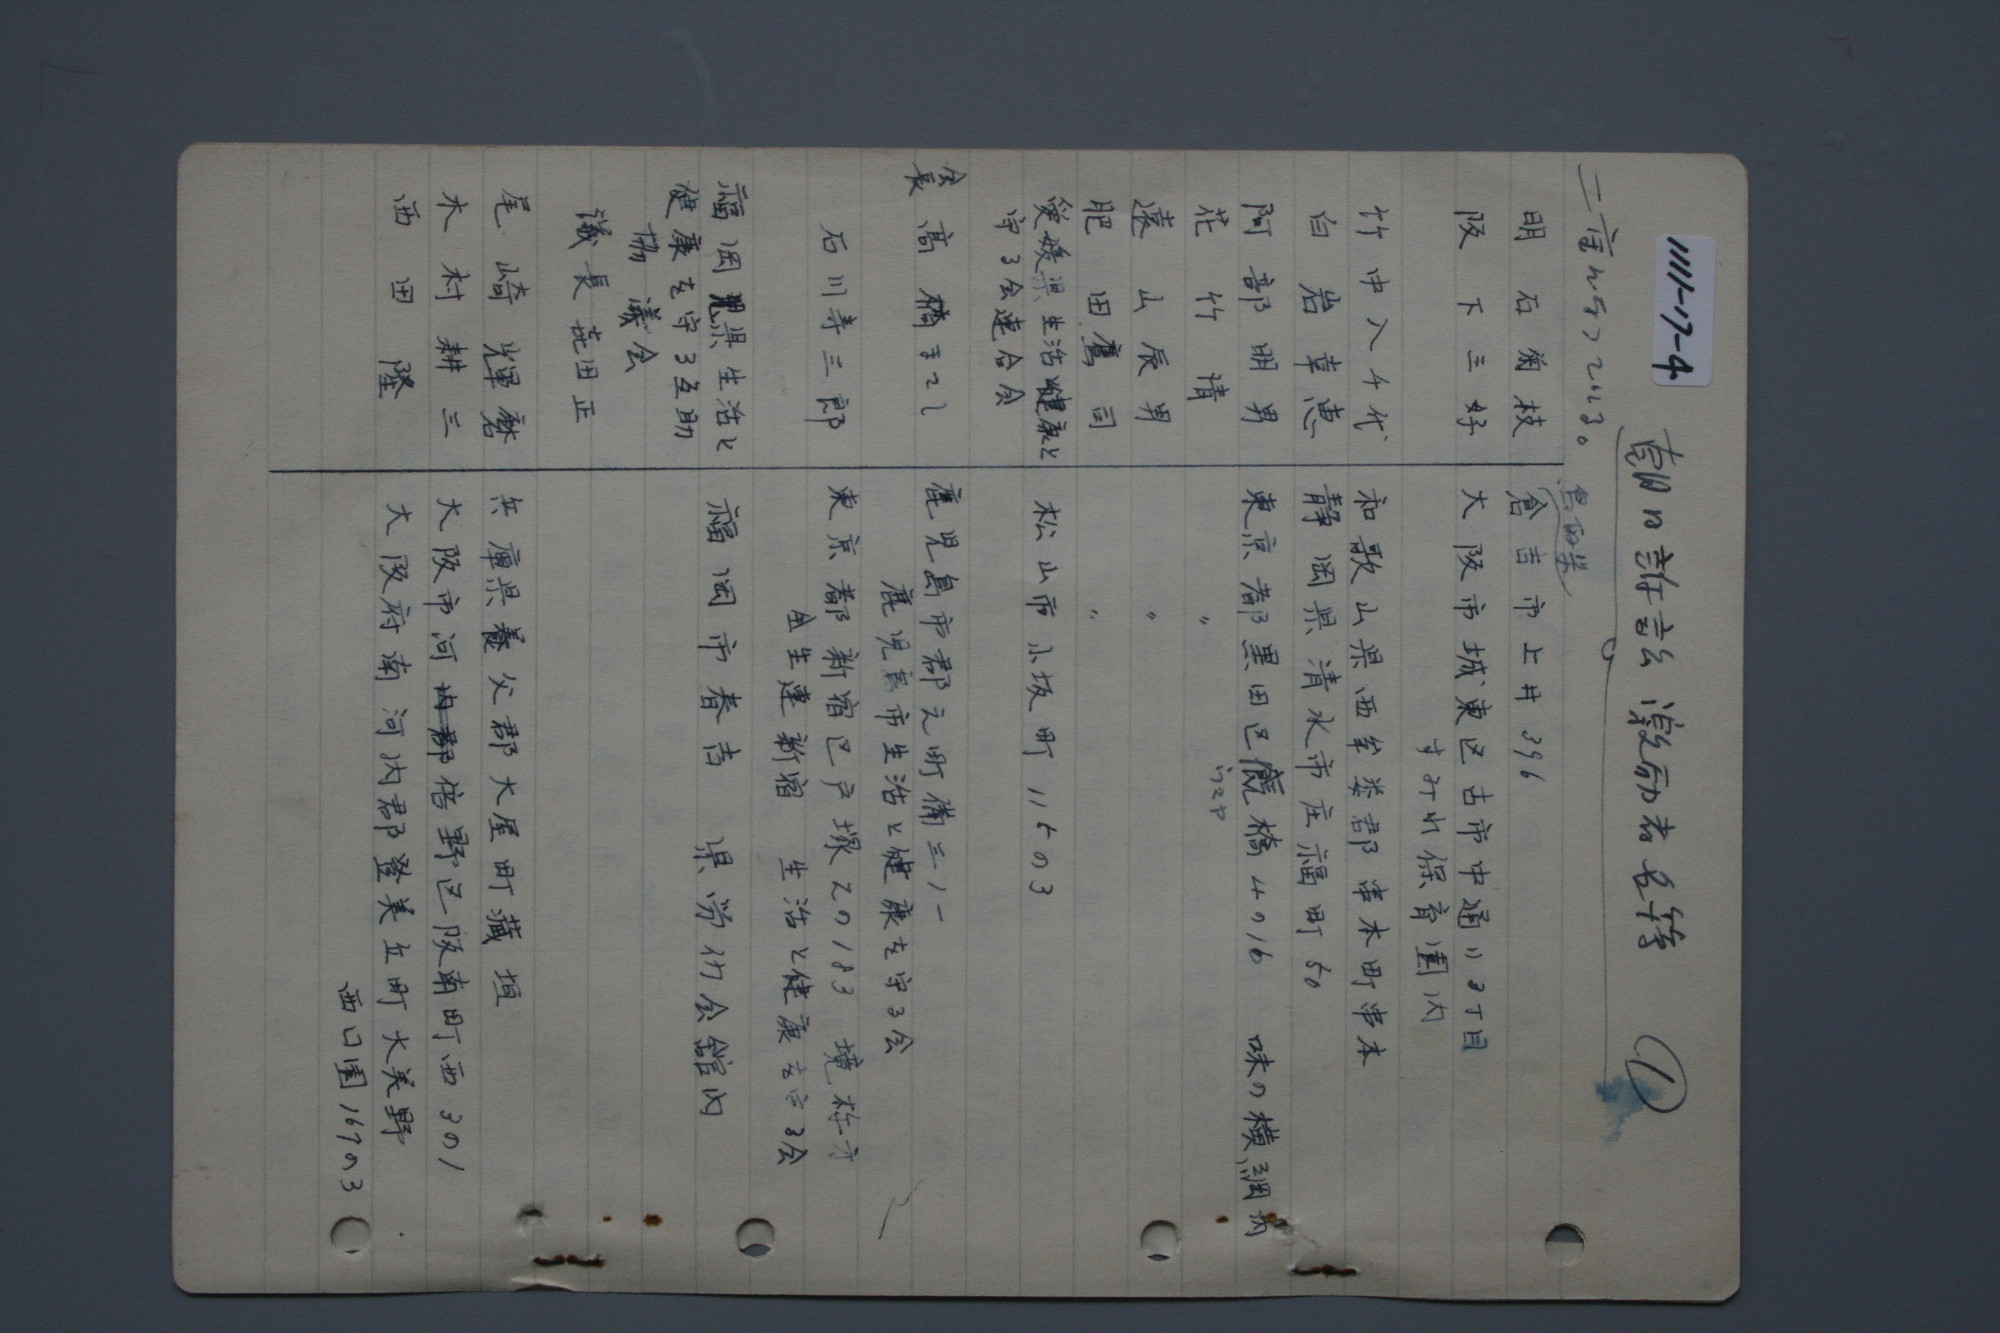 1111-17-4
朝日訴訟激励者名簿 ①
二重になっている。
明石菊枝 鳥取県 倉吉市上井396
阪下三好 大阪市城東区古市中通り3丁目
すみれ保育園内
竹中八千代 和歌山県西牟婁郡串本町串本
白岩幸恵 静岡県清水市庄福町50
阿部明男 東京都黒田区厩橋4の16 味の横綱内
花竹清 〃
遠山辰男 〃
肥田鷹司 〃
愛媛県生活と健康を 松山市小坂町115の3
守る会連合会
会長 高橋まさし 鹿児島市郡元町備三ノ一
鹿児島市生活と健康を守る会
石川寿三郎 東京都新宿区戸塚2の183
全生連新宿 生活と健康を守る会
福岡県生活と 福岡市春吉 県労働会館内
健康を守る互助
協議会
議長 花田正
尾崎光輝磨 兵庫県養父郡大屋町蔵垣
木村耕三 大阪市阿倍野区阪南町西3の1
西田隆 大阪府南河内郡登美丘町大美野
西口園167の3